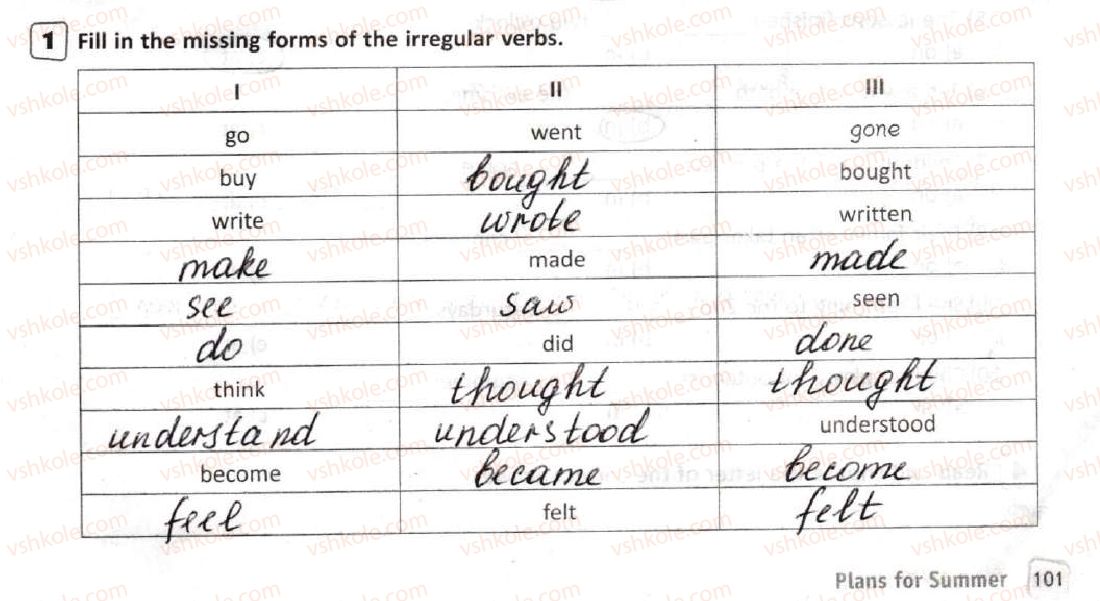 1 Fill in the missing forms of the irregular verbs.
I II III
go went gone
buy bought bought
write wrote written
make made made
see saw seen
do did done
think thought thought
understand understood understood
become became become
feel felt felt
Plans for Summer 101
vshkole.com